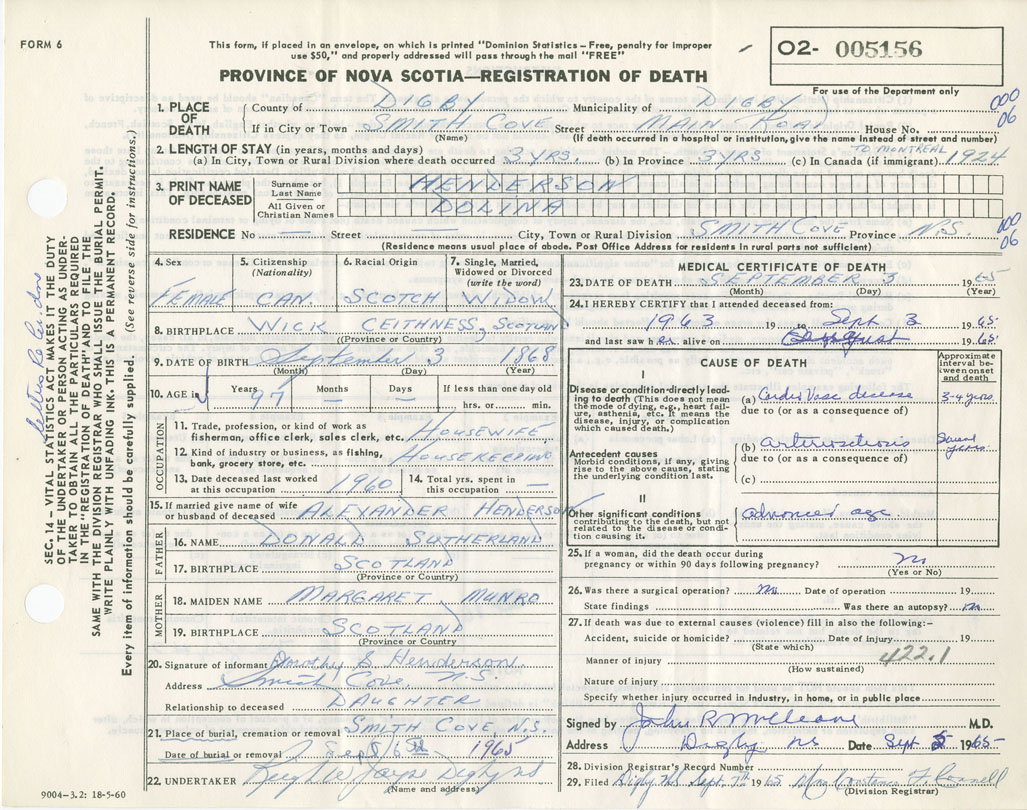 FORM 6
This form, if placed in an envelope, on which is printed "Dominion Statistics – Free, penalty for improper
use $50," and properly addressed will pass through the mail "FREE"
PROVINCE OF NOVA SCOTIA—REGISTRATION OF DEATH
O2- 005156
For use of the Department only
000
06
1. PLACE OF DEATH County of DIGBY Municipality of DIGBY
If in City or Town SMITH COVE (Name) Street MAIN ROAD House No.
(If death occurred in a hospital or institution, give the name instead of street and number)
2. LENGTH OF STAY (in years, months and days) TO MONTREAL
(a) In City, Town or Rural Division where death occurred 3 YRS. (b) In Province 3 YRS (c) In Canada (if immigrant) 1924
3. PRINT NAME OF DECEASED Surname or Last Name HENDERSON
All Given or Christian Names DOLINA
RESIDENCE No — Street — City, Town or Rural Division SMITH COVE Province N.S.
000
06
(Residence means usual place of abode. Post Office Address for residents in rural parts not sufficient)
4. Sex FEMALE
5. Citizenship (Nationality) CAN.
6. Racial Origin SCOTCH
7. Single, Married, Widowed or Divorced (write the word) WIDOW
8. BIRTHPLACE WICK CEITHNESS, SCOTLAN
(Province or Country)
9. DATE OF BIRTH September 3 1868
(Month) (Day) (Year)
10. AGE in Years 97 Months — Days — If less than one day old hrs. or min.
OCCUPATION
11. Trade, profession, or kind of work as
fisherman, office clerk, sales clerk, etc. HOUSEWIFE
12. Kind of industry or business, as fishing,
bank, grocery store, etc. HOUSEKEEPING
13. Date deceased last worked at this occupation 1960 14. Total yrs. spent in this occupation —
15. If married give name of wife or husband of deceased ALEXANDER HENDERSON
FATHER
16. NAME DONALD SUTHERLAND
17. BIRTHPLACE SCOTLAND
(Province or Country)
MOTHER
18. MAIDEN NAME MARGARET MUNRO
19. BIRTHPLACE SCOTLAND
(Province or Country)
20. Signature of informant Dorothy S Henderson
Address Smith Cove, N.S.
Relationship to deceased DAUGHTER
21. Place of burial, cremation or removal SMITH COVE, N.S.
Date of burial or removal Sept 6th 1965
22. UNDERTAKER Digby NS
(Name and address)
9004-3.2: 18-5-60
MEDICAL CERTIFICATE OF DEATH
23. DATE OF DEATH SEPTEMBER 3 1965
(Month) (Day) (Year)
24. I HEREBY CERTIFY that I attended deceased from:
1963 19 to Sept 3 1965
and last saw her alive on August 1965
CAUSE OF DEATH
Approximate interval between onset and death
I
Disease or condition directly leading to death (This does not mean the mode of dying, e.g., heart failure, asthenia, etc. It means the disease, injury, or complication which caused death.)
(a) Cardio Vasc disease 3-4 years
due to (or as a consequence of)
Antecedent causes
Morbid conditions, if any, giving rise to the above cause, stating the underlying condition last.
(b) arteriosclerosis Several years
due to (or as a consequence of)
(c)
II
Other significant conditions
contributing to the death, but not related to the disease or condition causing it.
advanced age
25. If a woman, did the death occur during
pregnancy or within 90 days following pregnancy? No
(Yes or No)
26. Was there a surgical operation? no Date of operation 19
State findings Was there an autopsy? no
27. If death was due to external causes (violence) fill in also the following:–
Accident, suicide or homicide? Date of injury 19
(State which)
Manner of injury 422.1
(How sustained)
Nature of injury
Specify whether injury occurred in industry, in home, or in public place
Signed by John R McCleave M.D.
Address Digby NS Date Sept 5 1965
28. Division Registrar's Record Number
29. Filed Digby N.S. Sept. 7th 1965 Mrs Constance F. Connell
(Division Registrar)
SEC. 14 – VITAL STATISTICS ACT MAKES IT THE DUTY
OF THE UNDERTAKER OR PERSON ACTING AS UNDER-
TAKER TO OBTAIN ALL THE PARTICULARS REQUIRED
IN THE "REGISTRATION OF DEATH" AND TO FILE THE
SAME WITH THE DIVISION REGISTRAR WHO SHALL ISSUE THE BURIAL PERMIT.
WRITE PLAINLY WITH UNFADING INK–THIS IS A PERMANENT RECORD.
Every item of information should be carefully supplied. (See reverse side for instructions.)